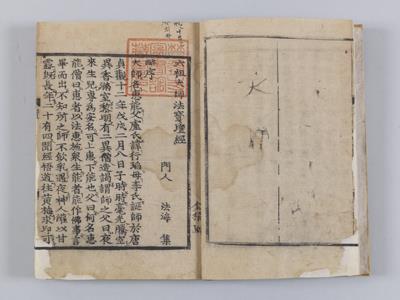 六祖大師法寶壇經
門人 法海 集
略序
大師名惠能父盧氏諱行瑫母李氏誕師於唐
貞觀十二年戊戌二月八日子時時毫光騰空
異香滿室黎明有二異僧造謁謂師之父曰夜
來生兒專為安名可上惠下能也父曰何名惠
能僧曰惠者以法惠施衆生能者能作佛事言
畢而出不知所之師不飲乳遇夜神人灌以甘
露既長年二十有四聞經悟道往黃梅求印可